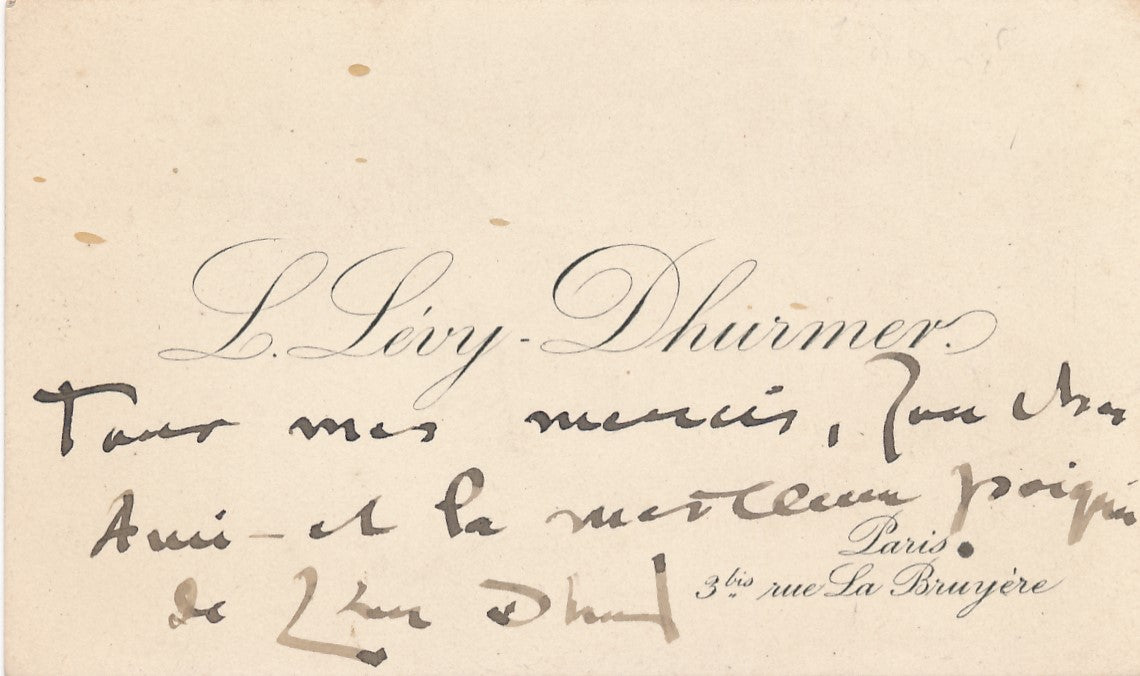 L. Lévy-Dhurmer.
Tous mes mercis, cher
Ami - et la meilleure poignée
Paris.
3bis rue La Bruyère
de